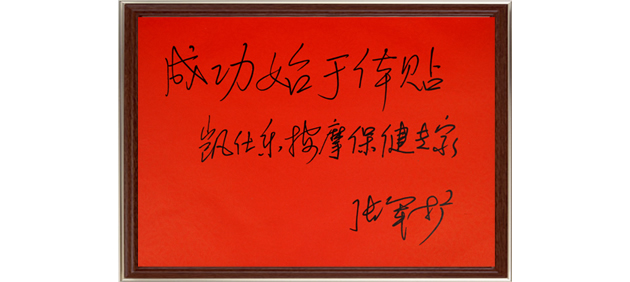 成功始于体贴
凯仕乐按摩保健专家
张军扩